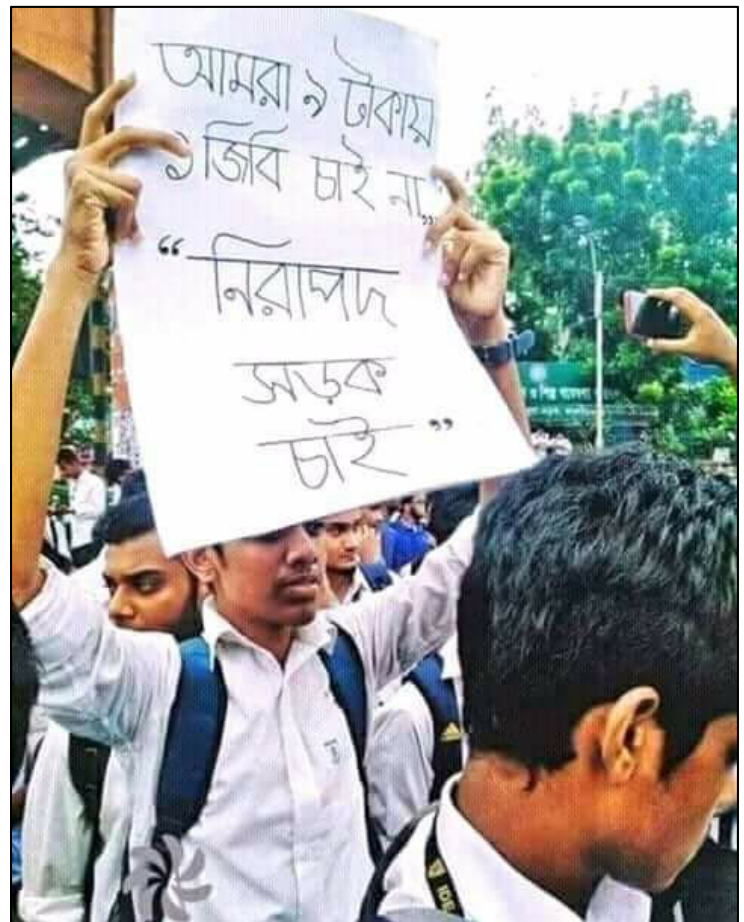 আমরা ৯ টাকায়
১ জিবি চাই না,,
“নিরাপদ
সড়ক
চাই”